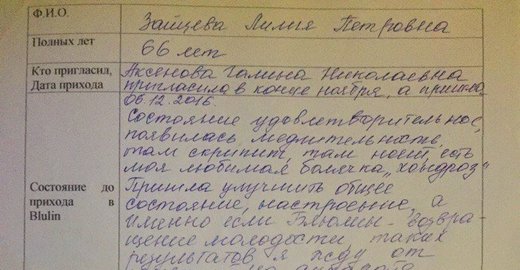 Ф.И.О.
Зайцева Лилия Петровна
Полных лет
66 лет
Кто пригласил,
Дата прихода
Аксенова Галина Николаевна
пригласила в конце ноября, а пришла
06.12.2016
Состояние до
прихода в
Blulin
Состояние удовлетворительное,
появилась медлительность,
там скрипит, там ноет, есть
моя любимая болячка „хондроз"
Пришла улучшить общее
состояние, настроение, а
именно если Блюлин - возвра-
щение молодости, таких
результатов я жду от